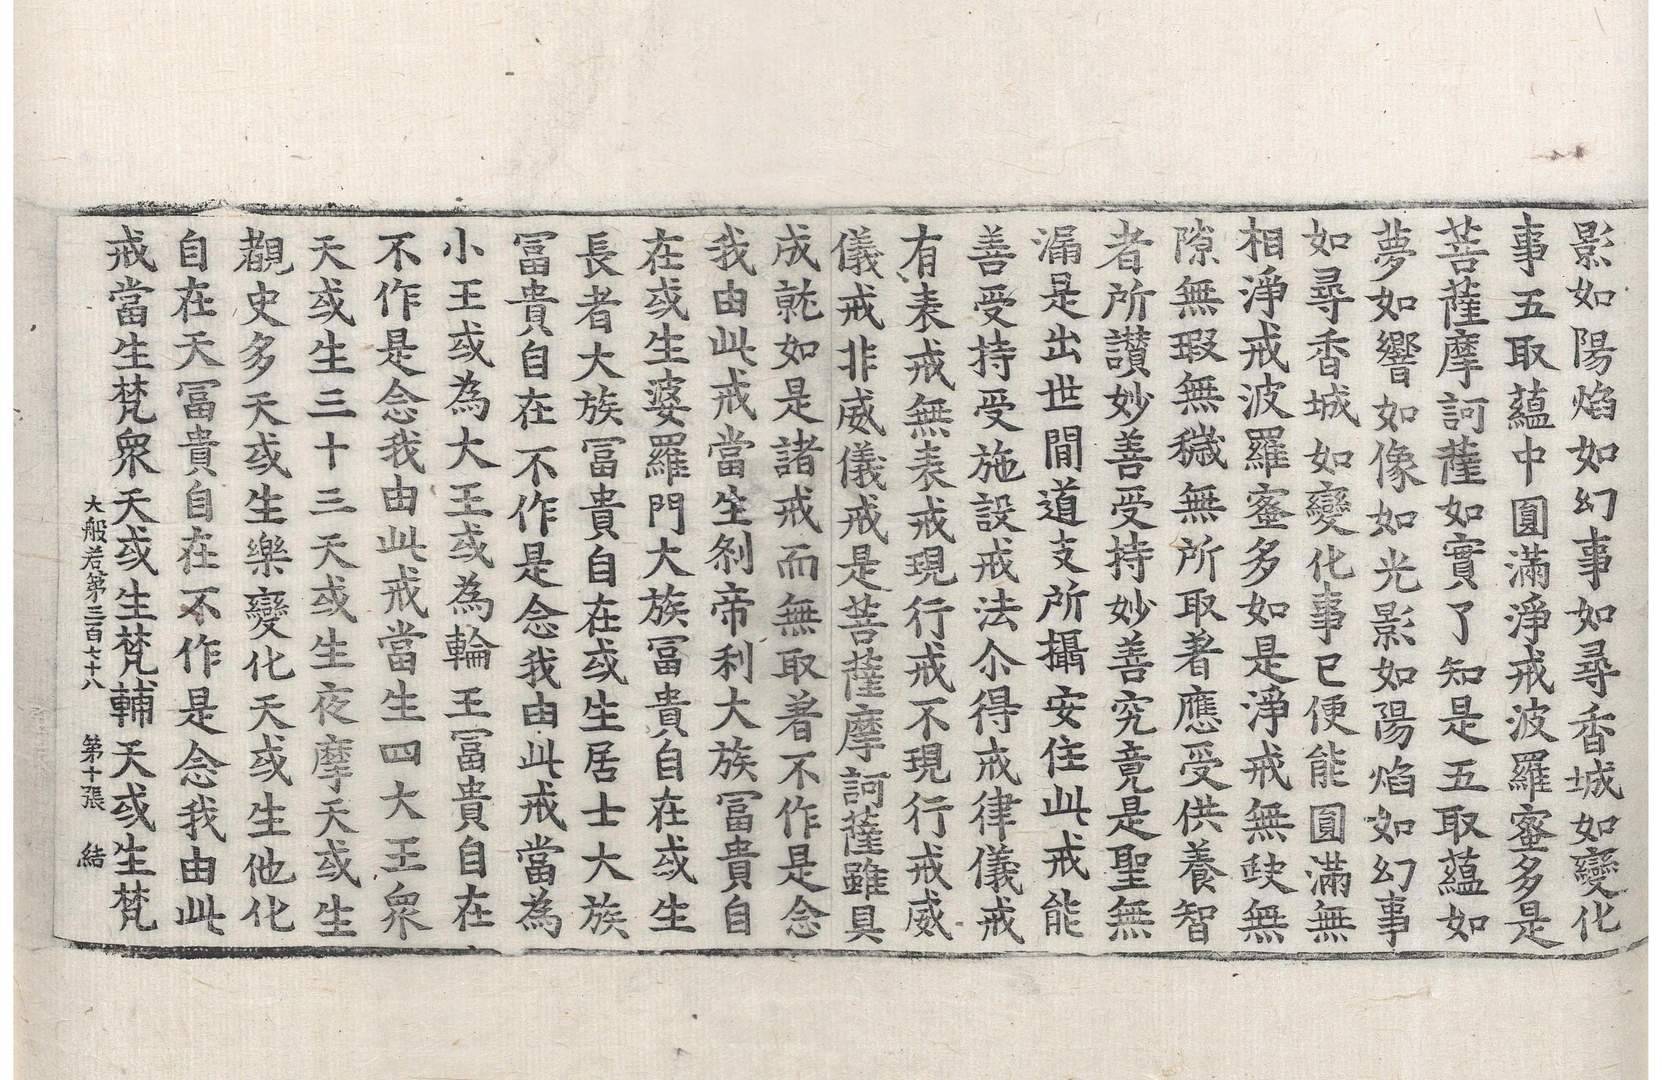 影如陽焰如幻事如尋香城如變化
事五取蘊中圓滿淨戒波羅蜜多是
菩薩摩訶薩如實了知是五取蘊如
夢如響如像如光影如陽焰如幻事
如尋香城如變化事已便能圓滿無
相淨戒波羅蜜多如是淨戒無缺無
隙無瑕無穢無所取著應受供養智
者所讚妙善受持妙善究竟是聖無
漏是出世間道支所攝安住此戒能
善受持受施設戒法尒得戒律儀戒
有表戒無表戒現行戒不現行戒威
儀戒非威儀戒是菩薩摩訶薩雖具
成就如是諸戒而無取著不作是念
我由此戒當生刹帝利大族冨貴自
在或生婆羅門大族冨貴自在或生
長者大族冨貴自在或生居士大族
冨貴自在不作是念我由此戒當為
小王或為大王或為輪王冨貴自在
不作是念我由此戒當生四大王衆
天或生三十三天或生夜摩天或生
覩史多天或生樂變化天或生他化
自在天冨貴自在不作是念我由此
戒當生梵衆天或生梵輔天或生梵
大般若第三百七十八 第十張 結